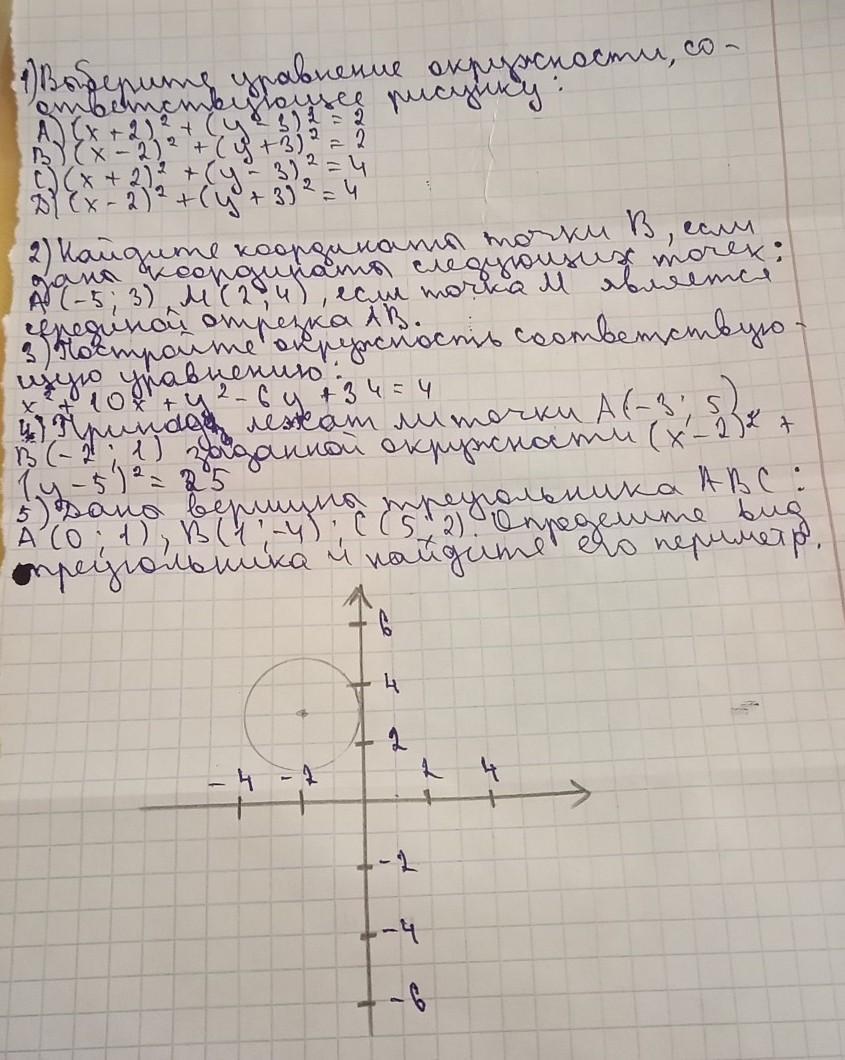 1) Выберите уравнение окружности, со-
ответствующее рисунку:
A) (x + 2)² + (y - 3)² = 2
B) (x - 2)² + (y + 3)² = 2
C) (x + 2)² + (y - 3)² = 4
D) (x - 2)² + (y + 3)² = 4
2) Найдите координаты точки B, если
даны координаты следующих точек:
A (-5; 3), M (2; 4), если точка M является
серединой отрезка AB.
3) Постройте окружность соответствую-
щую уравнению:
x² + 10x + y² - 6y + 34 = 4
4) Принадлежат ли точки A(-3; 5)
B(-2; 1) заданной окружности (x - 2)² +
(y - 5)² = 25
5) Даны вершины треугольника ABC:
A (0; 1), B(1; -4); C(5; 2). Определите вид
треугольника и найдите его периметр.
6
4
2
-4 -2 2 4
-2
-4
-6